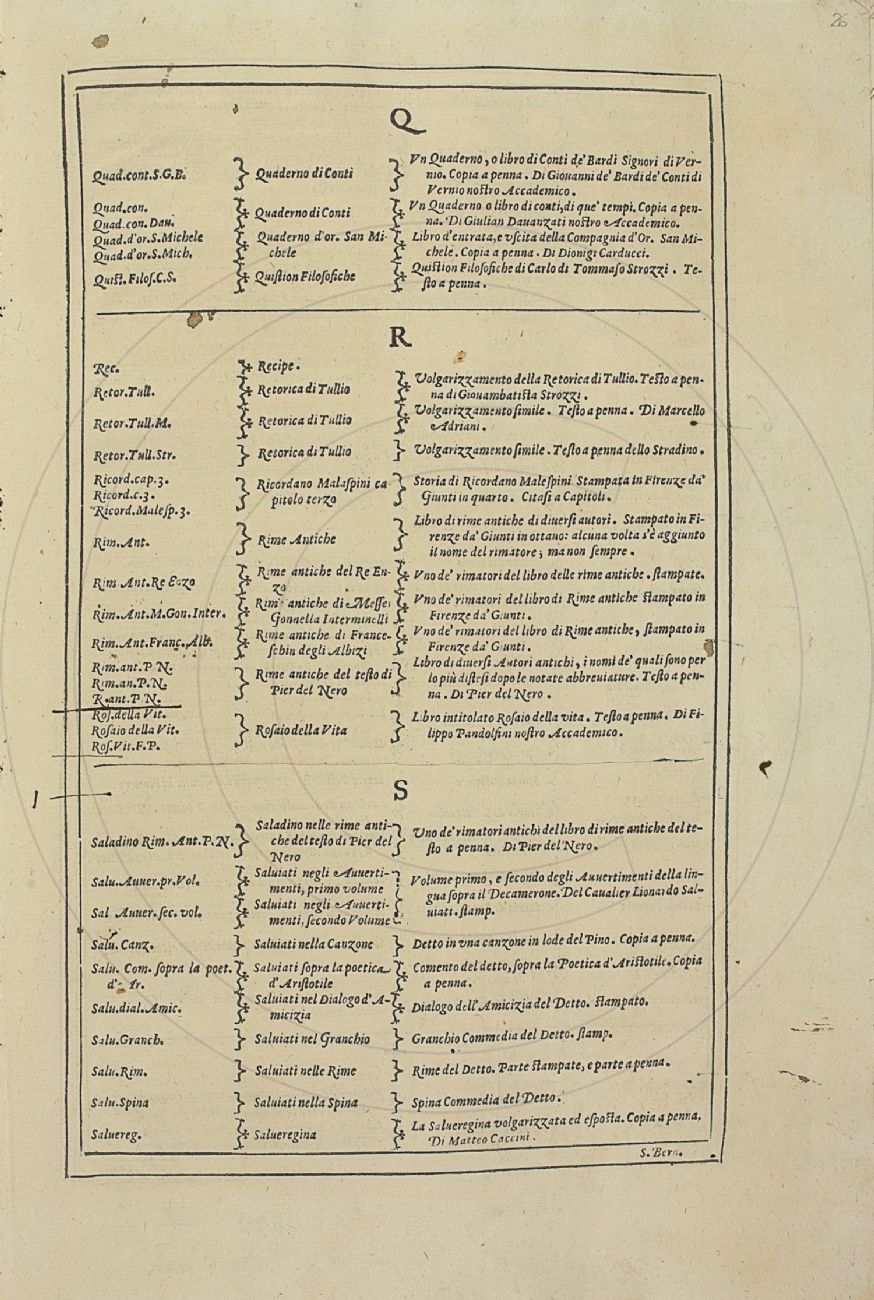 26
Q
Quad.cont.S.G.B. Quaderno di Conti Vn Quaderno, o libro di Conti de' Bardi Signori di Ver-
nio. Copia a penna. Di Giouanni de' Bardi de' Conti di
Vernio nostro Accademico.
Quad.con.
Quad.con.Dau. Quaderno di Conti Vn Quaderno o libro di conti, di que' tempi. Copia a pen-
na. Di Giulian Dauanzati nostro Accademico.
Quad.d'or.S.Michele Quaderno d'or. San Mi- Libro d'entrata, e vscita della Compagnia d'Or. San Mi-
Quad.d'or.S.Mich. chele chele. Copia a penna. Di Dionigi Carducci.
Quist.Filos.C.S. Quistion Filosofiche Quistion Filosofiche di Carlo di Tommaso Strozzi. Te-
sto a penna.
R
Rec. Recipe.
Retor.Tull. Retorica di Tullio Volgarizzamento della Retorica di Tullio. Testo a pen-
na di Giouambatista Strozzi.
Retor.Tull.M. Retorica di Tullio Volgarizzamento simile. Testo a penna. Di Marcello
Adriani.
Retor.Tull.Str. Retorica di Tullio Volgarizzamento simile. Testo a penna dello Stradino.
Ricord.cap.3. Ricordano Malaspini ca- Storia di Ricordano Malespini Stampata in Firenze da'
Ricord.c.3. pitolo terzo Giunti in quarto. Citasi a Capitoli.
Ricord.Malesp.3.
Rim.Ant. Rime Antiche Libro di rime antiche di diuersi autori. Stampato in Fi-
renze da' Giunti in ottauo: alcuna volta s'è aggiunto
il nome del rimatore; ma non sempre.
Rim Ant.Re Enzo Rime antiche del Re En- Vno de' rimatori del libro delle rime antiche. stampate.
zo
Rim.Ant.M.Gon.Inter. Rime antiche di Messer Vno de' rimatori del libro di Rime antiche stampato in
Gonnella Interminelli Firenze da' Giunti.
Rim.Ant.Franc.Alb. Rime antiche di France- Vno de' rimatori del libro di Rime antiche, stampato in
schin degli Albizi Firenze da' Giunti.
Rim.ant.P N. Rime antiche del testo di Libro di diuersi Autori antichi, i nomi de' quali sono per
Rim.an.P.N. Pier del Nero lo più distesi dopo le notate abbreuiature. Testo a pen-
R.ant.P N. na. Di Pier del Nero.
Ros.della Vit.
Rosaio della Vit. Rosaio della Vita Libro intitolato Rosaio della vita. Testo a penna. Di Fi-
Ros.Vit.F.P. lippo Pandolfini nostro Accademico.
S
Saladino Rim. Ant.P.N. Saladino nelle rime anti- Uno de' rimatori antichi del libro di rime antiche del te-
che del testo di Pier del sto a penna. Di Pier del Nero.
Nero
Salu.Auuer.pr.Vol. Saluiati negli Auuerti- Volume primo, e secondo degli Auuertimenti della lin-
menti, primo volume gua sopra il Decamerone. Del Caualier Lionardo Sal-
Sal Auuer.sec.vol. Saluiati negli Auuerti- uiati. stamp.
menti, secondo Volume
Salu.Canz. Saluiati nella Canzone Detto in vna canzone in lode del Pino. Copia a penna.
Salu. Com. sopra la poet. Saluiati sopra la poetica Comento del detto, sopra la Poetica d'Aristotile. Copia
d'Ar. d'Aristotile a penna.
Salu.dial.Amic. Saluiati nel Dialogo d'A- Dialogo dell'Amicizia del Detto. stampato.
micizia
Salu.Granch. Saluiati nel Granchio Granchio Commedia del Detto. stamp.
Salu.Rim. Saluiati nelle Rime Rime del Detto. Parte stampate, e parte a penna.
Salu.Spina Saluiati nella Spina Spina Commedia del Detto.
Saluereg. Salueregina La Salueregina volgarizzata ed esposta. Copia a penna.
Di Matteo Caccini.
S. Bern.